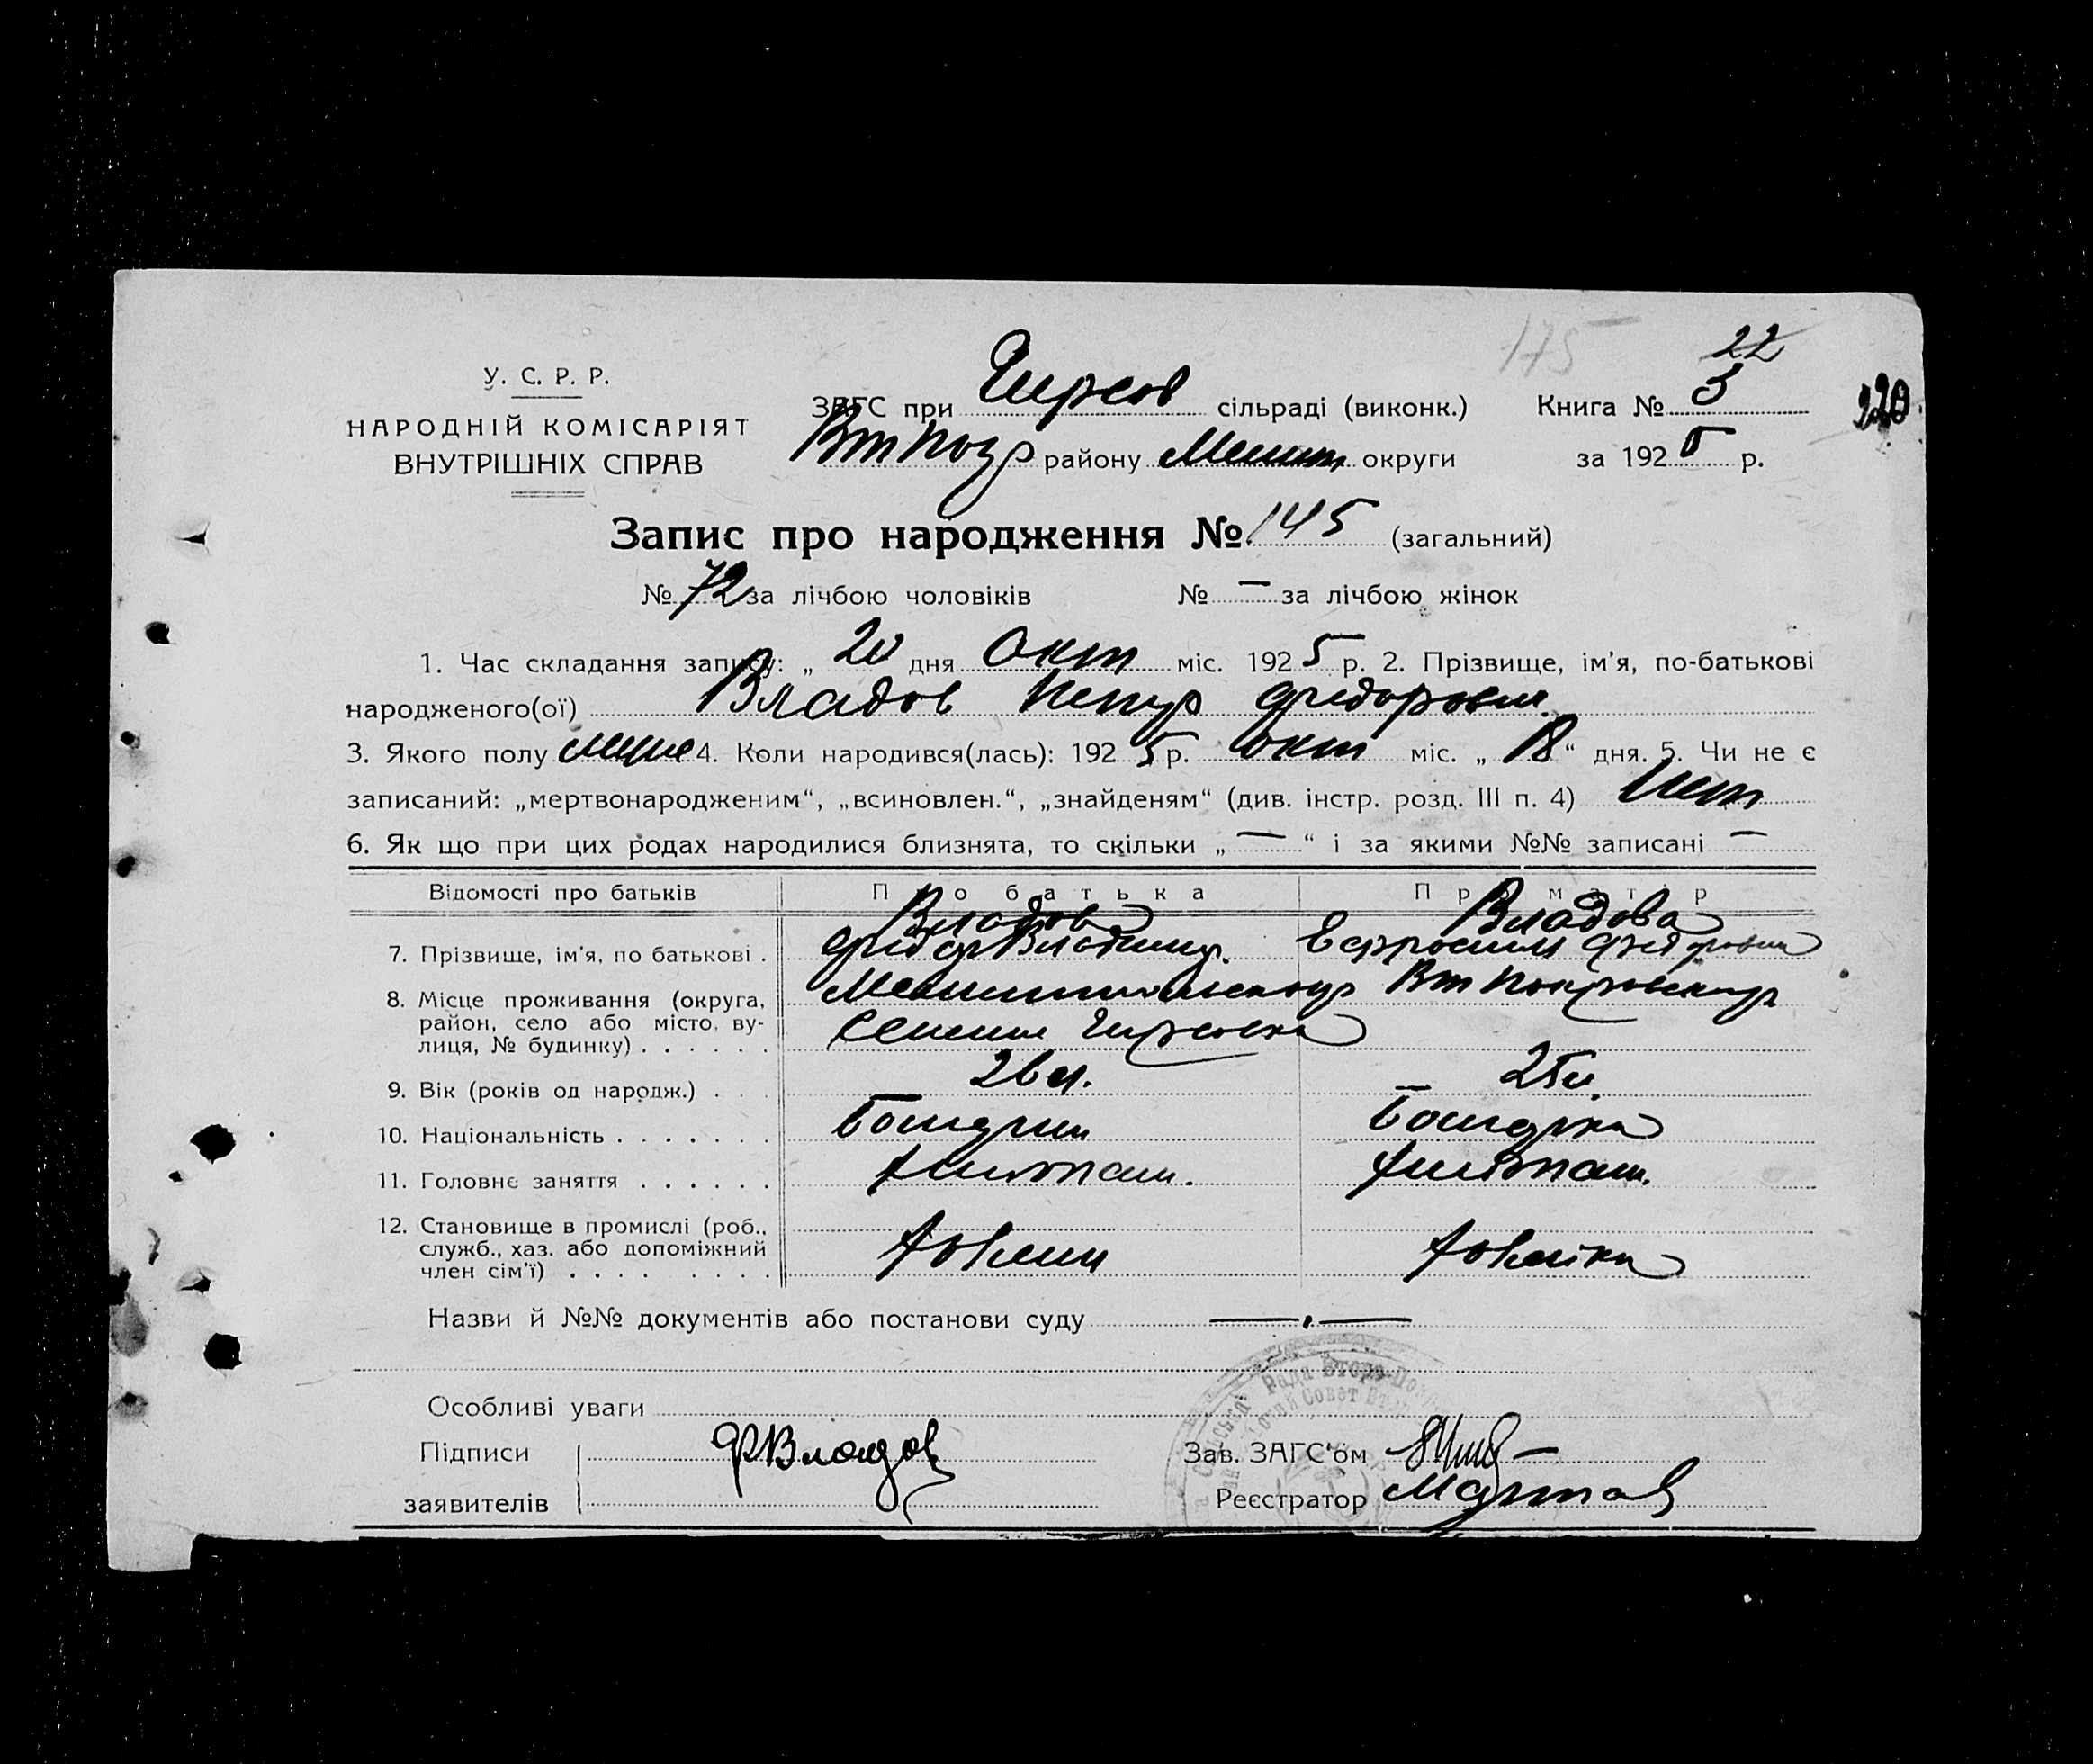 175
22
У. С. Р. Р.
НАРОДНІЙ КОМІСАРІЯТ
ВНУТРІШНІХ СПРАВ
ЗАГС при Гирсов сільраді (виконк.) Книга № 3
220
району Мелит округи за 1925 р.
Запис про народження № 145 (загальний)
№ 72 за лічбою чоловіків № — за лічбою жінок
1. Час складання запису: „ 20 дня Окт міс. 1925 р. 2. Прізвище, ім'я, по-батькові
народженого(ої) Владов Петр Федорович
3. Якого полу муже 4. Коли народився(лась): 1925 р. окт міс. „ 18 “ дня. 5. Чи не є
записаний: „мертвонародженим“, „всиновлен.“, „знайденям“ (див. інстр. розд. III п. 4) Нет
6. Як що при цих родах народилися близнята, то скільки „ — “ і за якими №№ записані —
Відомості про батьків Про батька Про матір
Владов Владова
7. Прізвище, ім'я, по батькові . Федор Ефросиня Федоровна
8. Місце проживання (округа, Вт Покровскаго
район, село або місто, ву-
лиця, № будинку) . . . . . . Селение Гирсовка
9. Вік (років од народж.) . . . 26 л. 25 л.
10. Національність . . . . . . . Болгарин Болгарка
11. Головнє заняття . . . . . . Хлебопаш. Хлебопаш.
12. Становище в промислі (роб.,
служб., хаз. або допоміжний
член сім'ї) . . . . . . . . Хозяин Хозяйка
Назви й №№ документів або постанови суду —,—
Особливі уваги
Підписи ФВладов Зав. ЗАГС'ом
заявителів Реєстратор
Рада Второ-
Совет